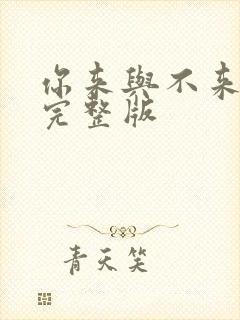 你来與不来
完整版
青天笑